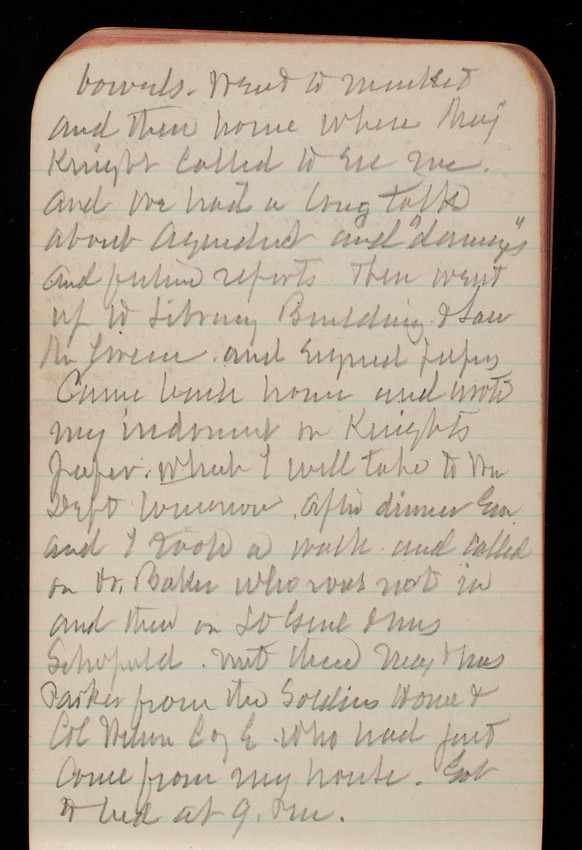 bowels. Went to market
and then home where Maj
Knight called to see me.
and we had a long talk
about aqueduct and "damages"
and future reports. Then went
up to Library Building & saw
Mr Green. and signed papers
Came back home and wrote
my indorsmt on Knights
paper. which I will take to War
Dept tomorrow. After dinner Em
and I took a walk and called
on Dr. Baker who was not in
and then on Lt Genl & Mrs
Schofield. met there Maj & Mrs
Parker from the Soldiers Home &
Col Wilson Cog E. who had just
come from my house. Got
to bed at 9. P.m.